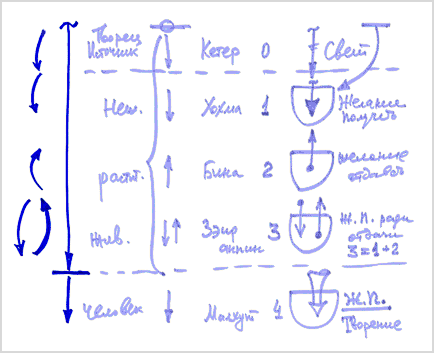 Творец
Источник
Кетер 0
Свет
Неж.
Хохма 1
Желание
получить
раст.
Бина 2
желание
отдавать
Жив.
Зэир
анпин 3
Ж.П. ради
отдачи
3=1+2
Человек
Малхут 4
Ж.П.
Творение